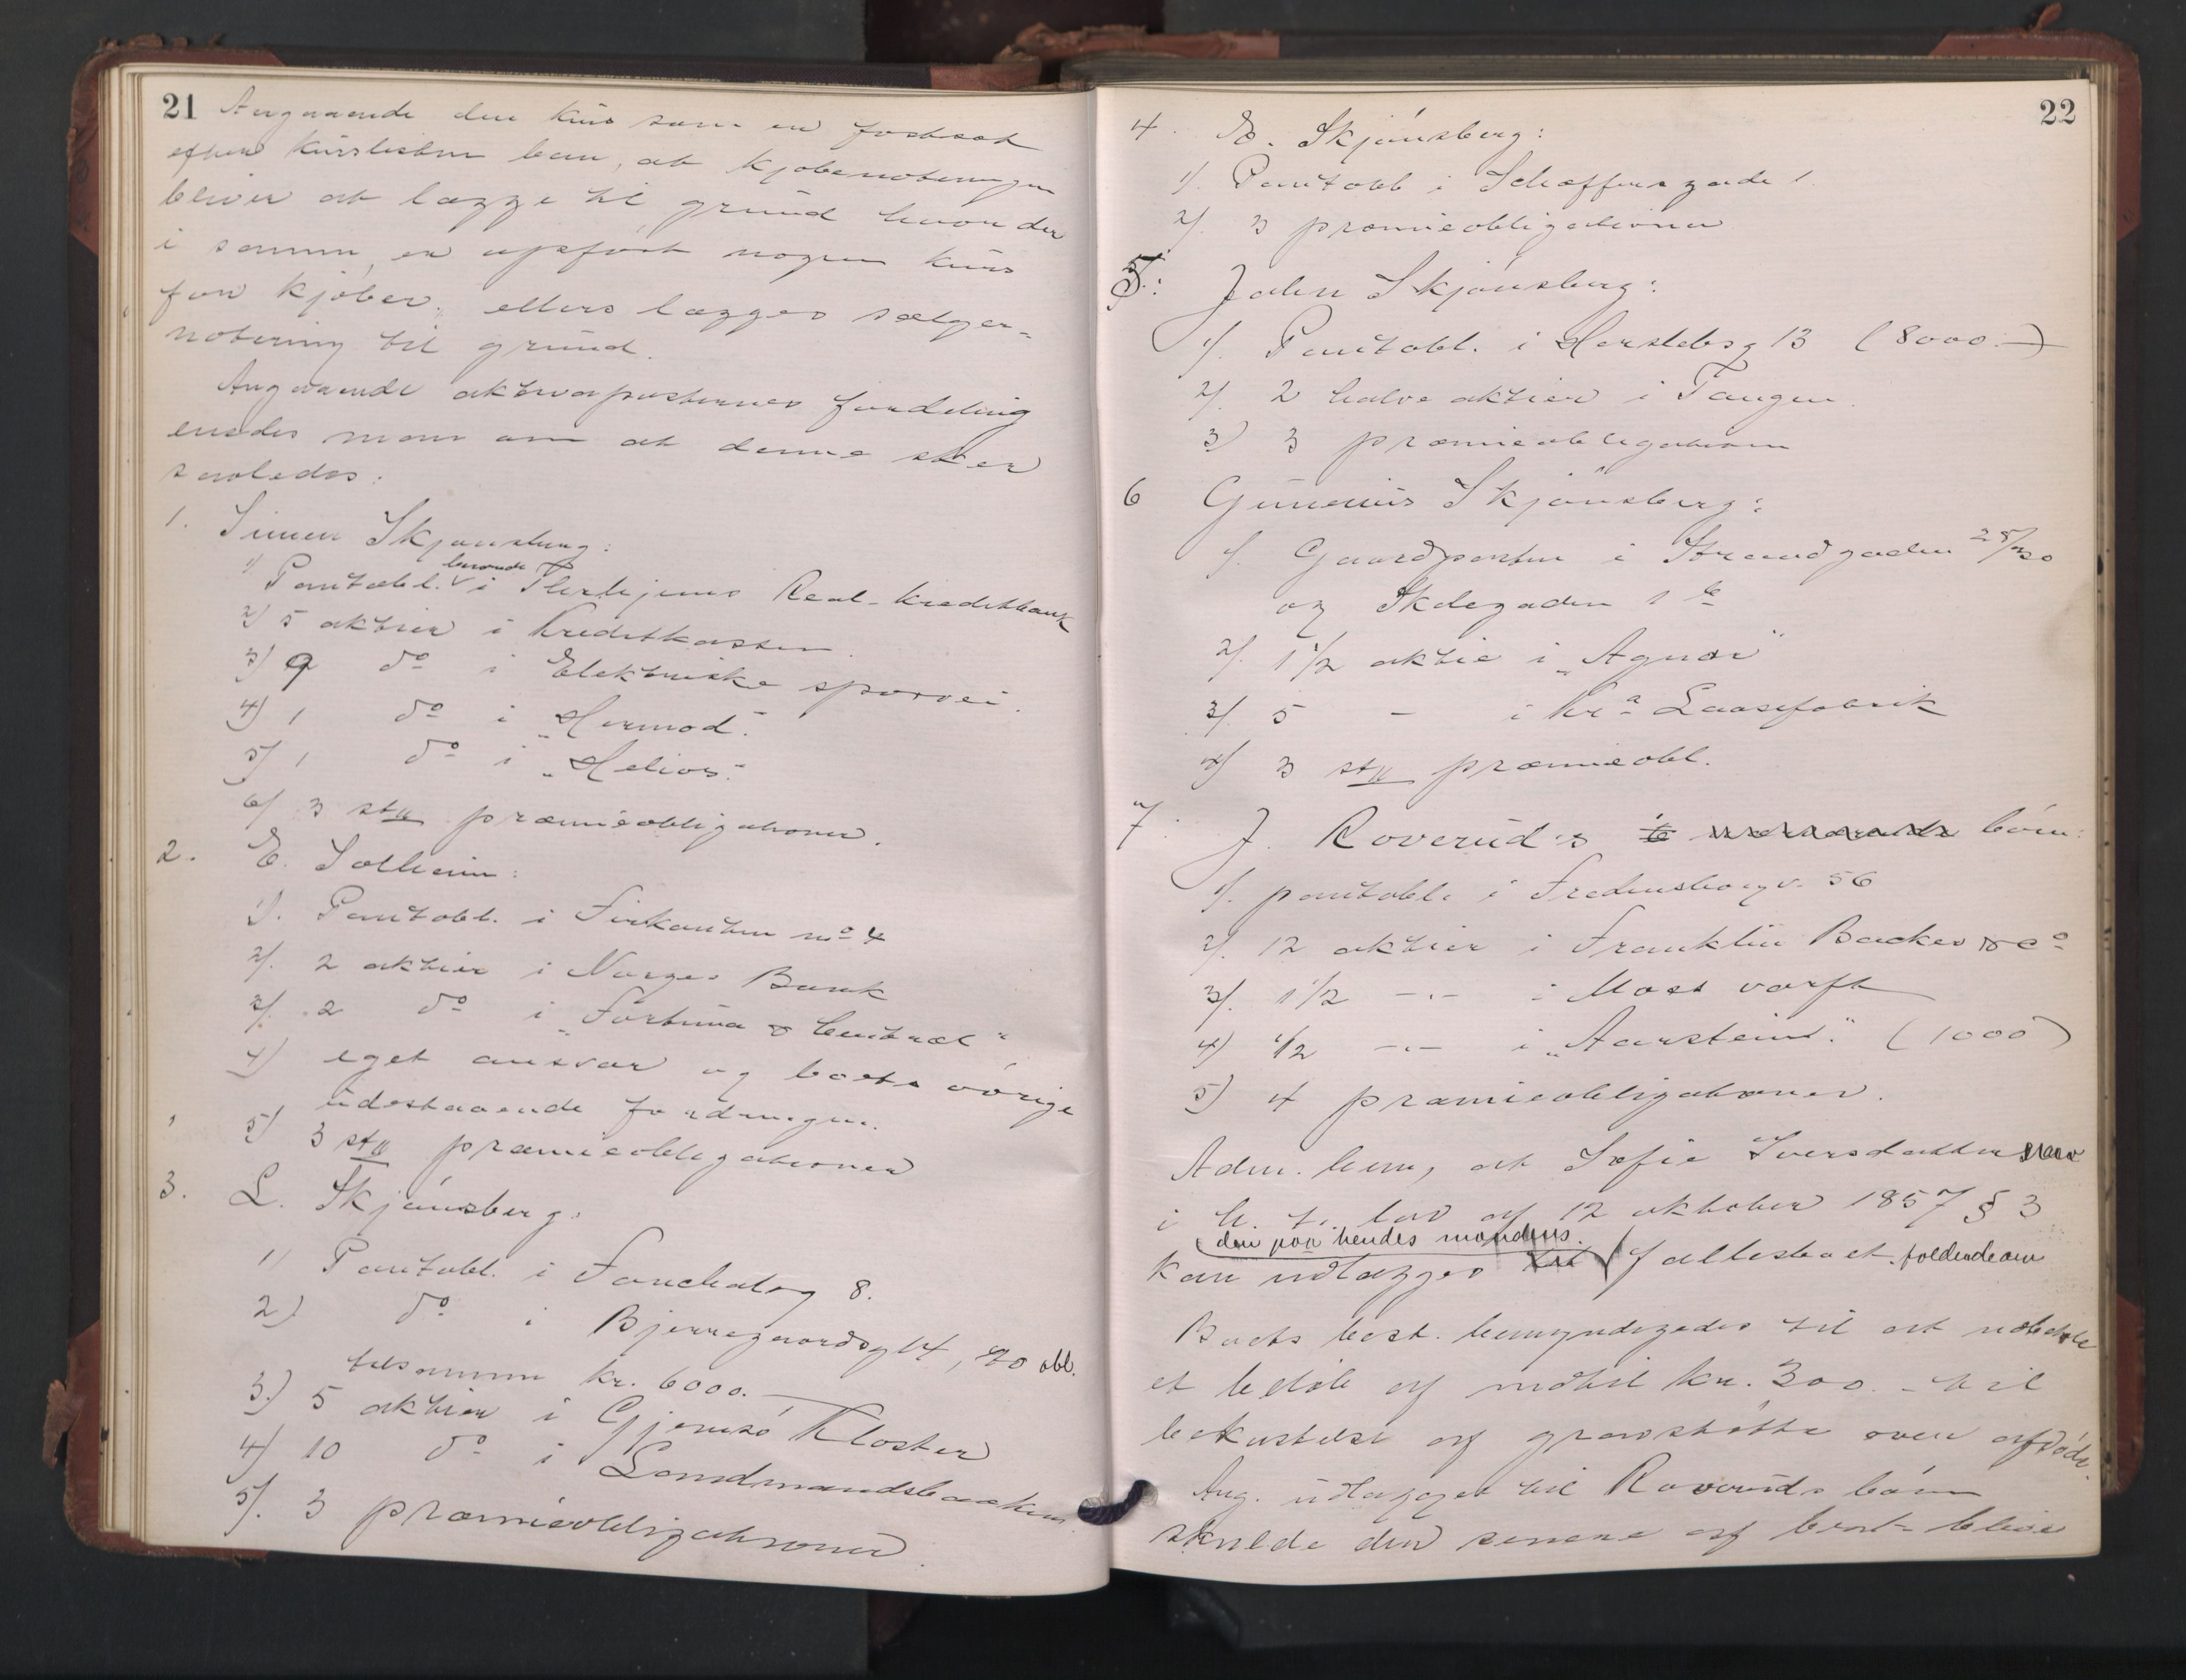 21
Angaaende den kurs som er fastsat
efter kurslisten bem, at kjøbernoteringen
bliver at lægge til grund hvor der
i samme er opført nogen kurs
for kjøber, ellers lægges sælger-
notering til grund.
Angaaende aktivaposternes fordeling
enedes man om at denne sker
saaledes:
1. Simen Skjønsberg:
1) Pantobl. beroende i Real-kreditbank
2) 5 aktier i Kreditkassen
3) 9 do i Elektriske sporvei.
4) 1 do i "Hermod".
5) 1 do i "Helios".
6) 3 stk præmieobligationer.
2. E. Solheim:
1). Pantobl. i Firkanten no 4
2). 2 aktier i Norges Bank
3). 2 do i "Fortuna & Central"
4) eget ansvar og boets øvrige
udestaaende fordringer.
5) 3 stk præmieobligationer
3. L. Skjønsberg:
1) Pantobl. i Fauchaldsg 8.
2) do i Bjerregaardsg 14, 20 obl.
tilsammen kr. 6000.—
3.) 5 aktier i Gjemsø Kloster
4) 10 do i Landmandsbanken
5). 3 præmieobligationer.
22
4. E. Skjønsberg:
1). Pantobl i Schæffersgade 1.
2). 3 præmieobligationer
5: John Skjønsberg:
1). Pantobl. i Herslebsg 13 (8000.—)
2). 2 halve aktier i Tangen.
3) 3 præmieobligationer
6 Gunerius Skjønsberg:
1). Gaardparten i Strandgaden 28/30
og Skolegaden 1 b
2). 1 1/2 aktie i "Agnar"
3). 5 - i Kra Laasefabrik
4) 3 stk præmieobl.
7. J. Roverud's børn:
1). pantobl. i Fredensborgv. 56
2). 12 aktier i Franklin Backes & Co
3). 1 1/2 -"- i Moss værft
4) 1/2 -"- i "Aarstein". (1000)
5) 4 præmieobligationer.
Adm. bem, at Sofie Iversdatter
i h. t. lov af 12 oktober 1857 § 3
den paa hendes mandens.
kan udlægges fællesboet. faldende arv
Boets best. bemyndigedes til at udbetale
et beløb af indtil kr. 300.- til
bekostelse af gravstøtte over afdøde.
Ang. udlægget til Roveruds børn
skulde den senere af boet blive